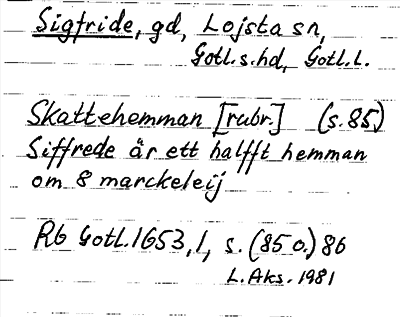 Sigfride, gd, Lojsta sn,
Gotl.s.hd, Gotl.L.
Skattehemman [rubr.] (s.85)
Siffrede är ett halfft hemman
om 8 marckeleij
Rb Gotl.1653,1, s.(85 o.) 86
L.Aks.1981